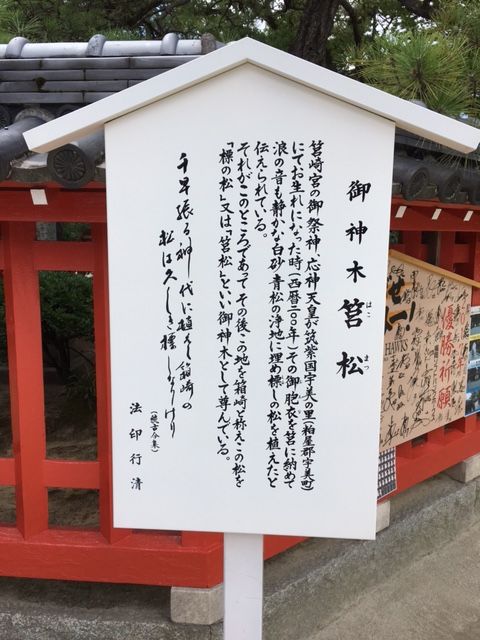 御神木筥松
はこ まつ
筥崎宮の御祭神、応神天皇が筑紫国宇美の里(粕屋郡宇美町)
にてお生れになった時(西暦二〇〇年)その御胞衣を筥に納めて
浪の音も静かな白砂、青松の浄地に埋め標しの松を植えたと
伝えられている。
それがこのところであって、その後、この地を箱崎と称え、この松を
「標の松」又は「筥松」といい御神木として尊んでいる。
千早振る神代に植えし箱崎の
松は久しき標しなりけり
(続古今集)
法印行清
優勝祈願
HAWKS